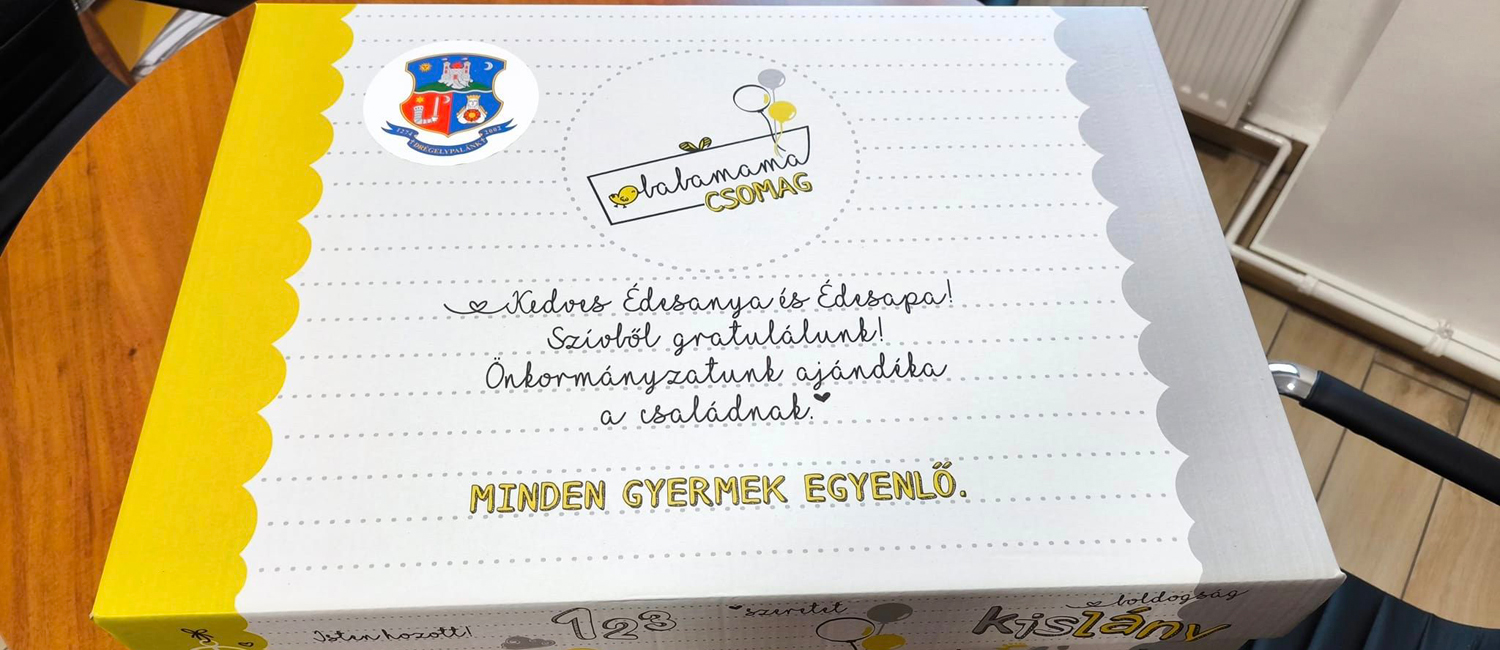 1274 DRÉGELYPALÁNK 2002
babamama
CSOMAG
Kedves Édesanya és Édesapa!
Szívből gratulálunk!
Önkormányzatunk ajándéka
a családnak.
MINDEN GYERMEK EGYENLŐ.
Isten hozott!
123
szeretet
boldogság
kislány